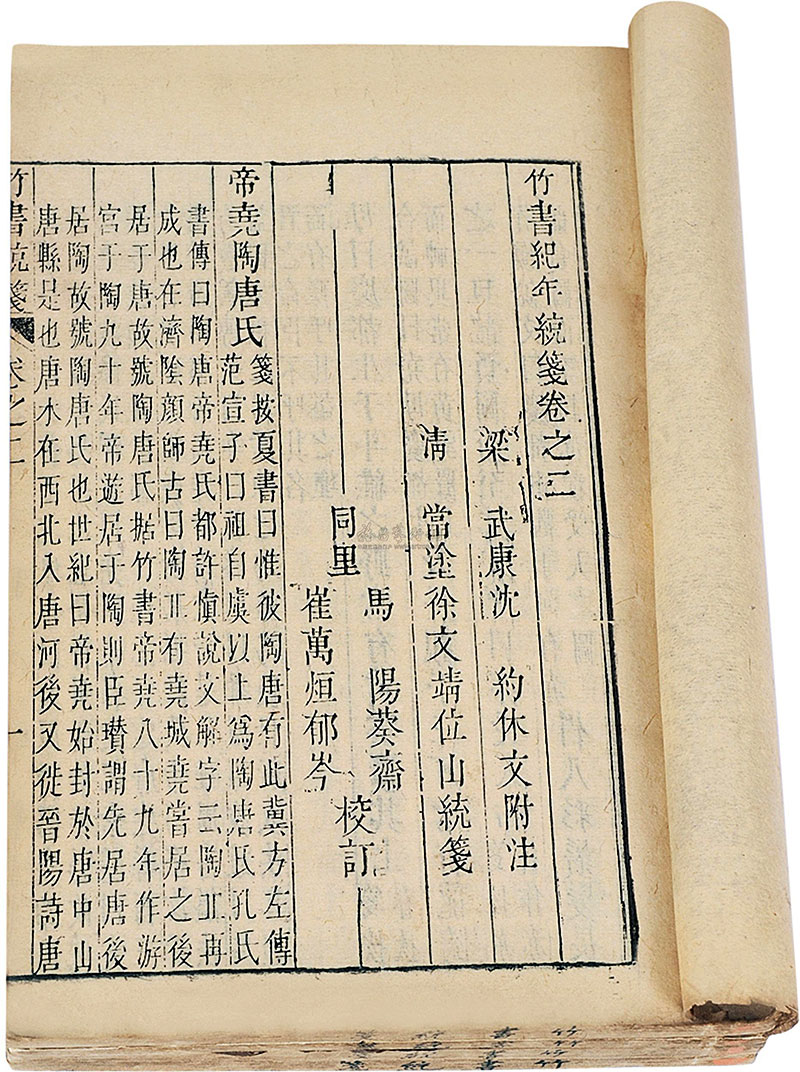 竹書紀年統箋卷之二
梁 武康沈 約休文附注
清 當塗徐文靖位山統箋
馬 陽葵齋
同里 校訂
崔萬烜郁岑
帝堯陶唐氏
箋按夏書曰惟彼陶唐有此冀方左傳
范宣子曰祖自虞以上爲陶唐氏孔氏
書傳曰陶唐帝堯氏都許愼說文解字云陶丘再
成也在濟陰顏師古曰陶丘有堯城堯嘗居之後
居于唐故號陶唐氏据竹書帝堯八十九年作游
宮于陶九十年帝遊居于陶則臣瓚謂先居唐後
居陶故號陶唐氏也世紀曰帝堯始封於唐中山
唐縣是也唐水在西北入唐河後又徙晉陽詩唐
竹書統箋 卷之二 一